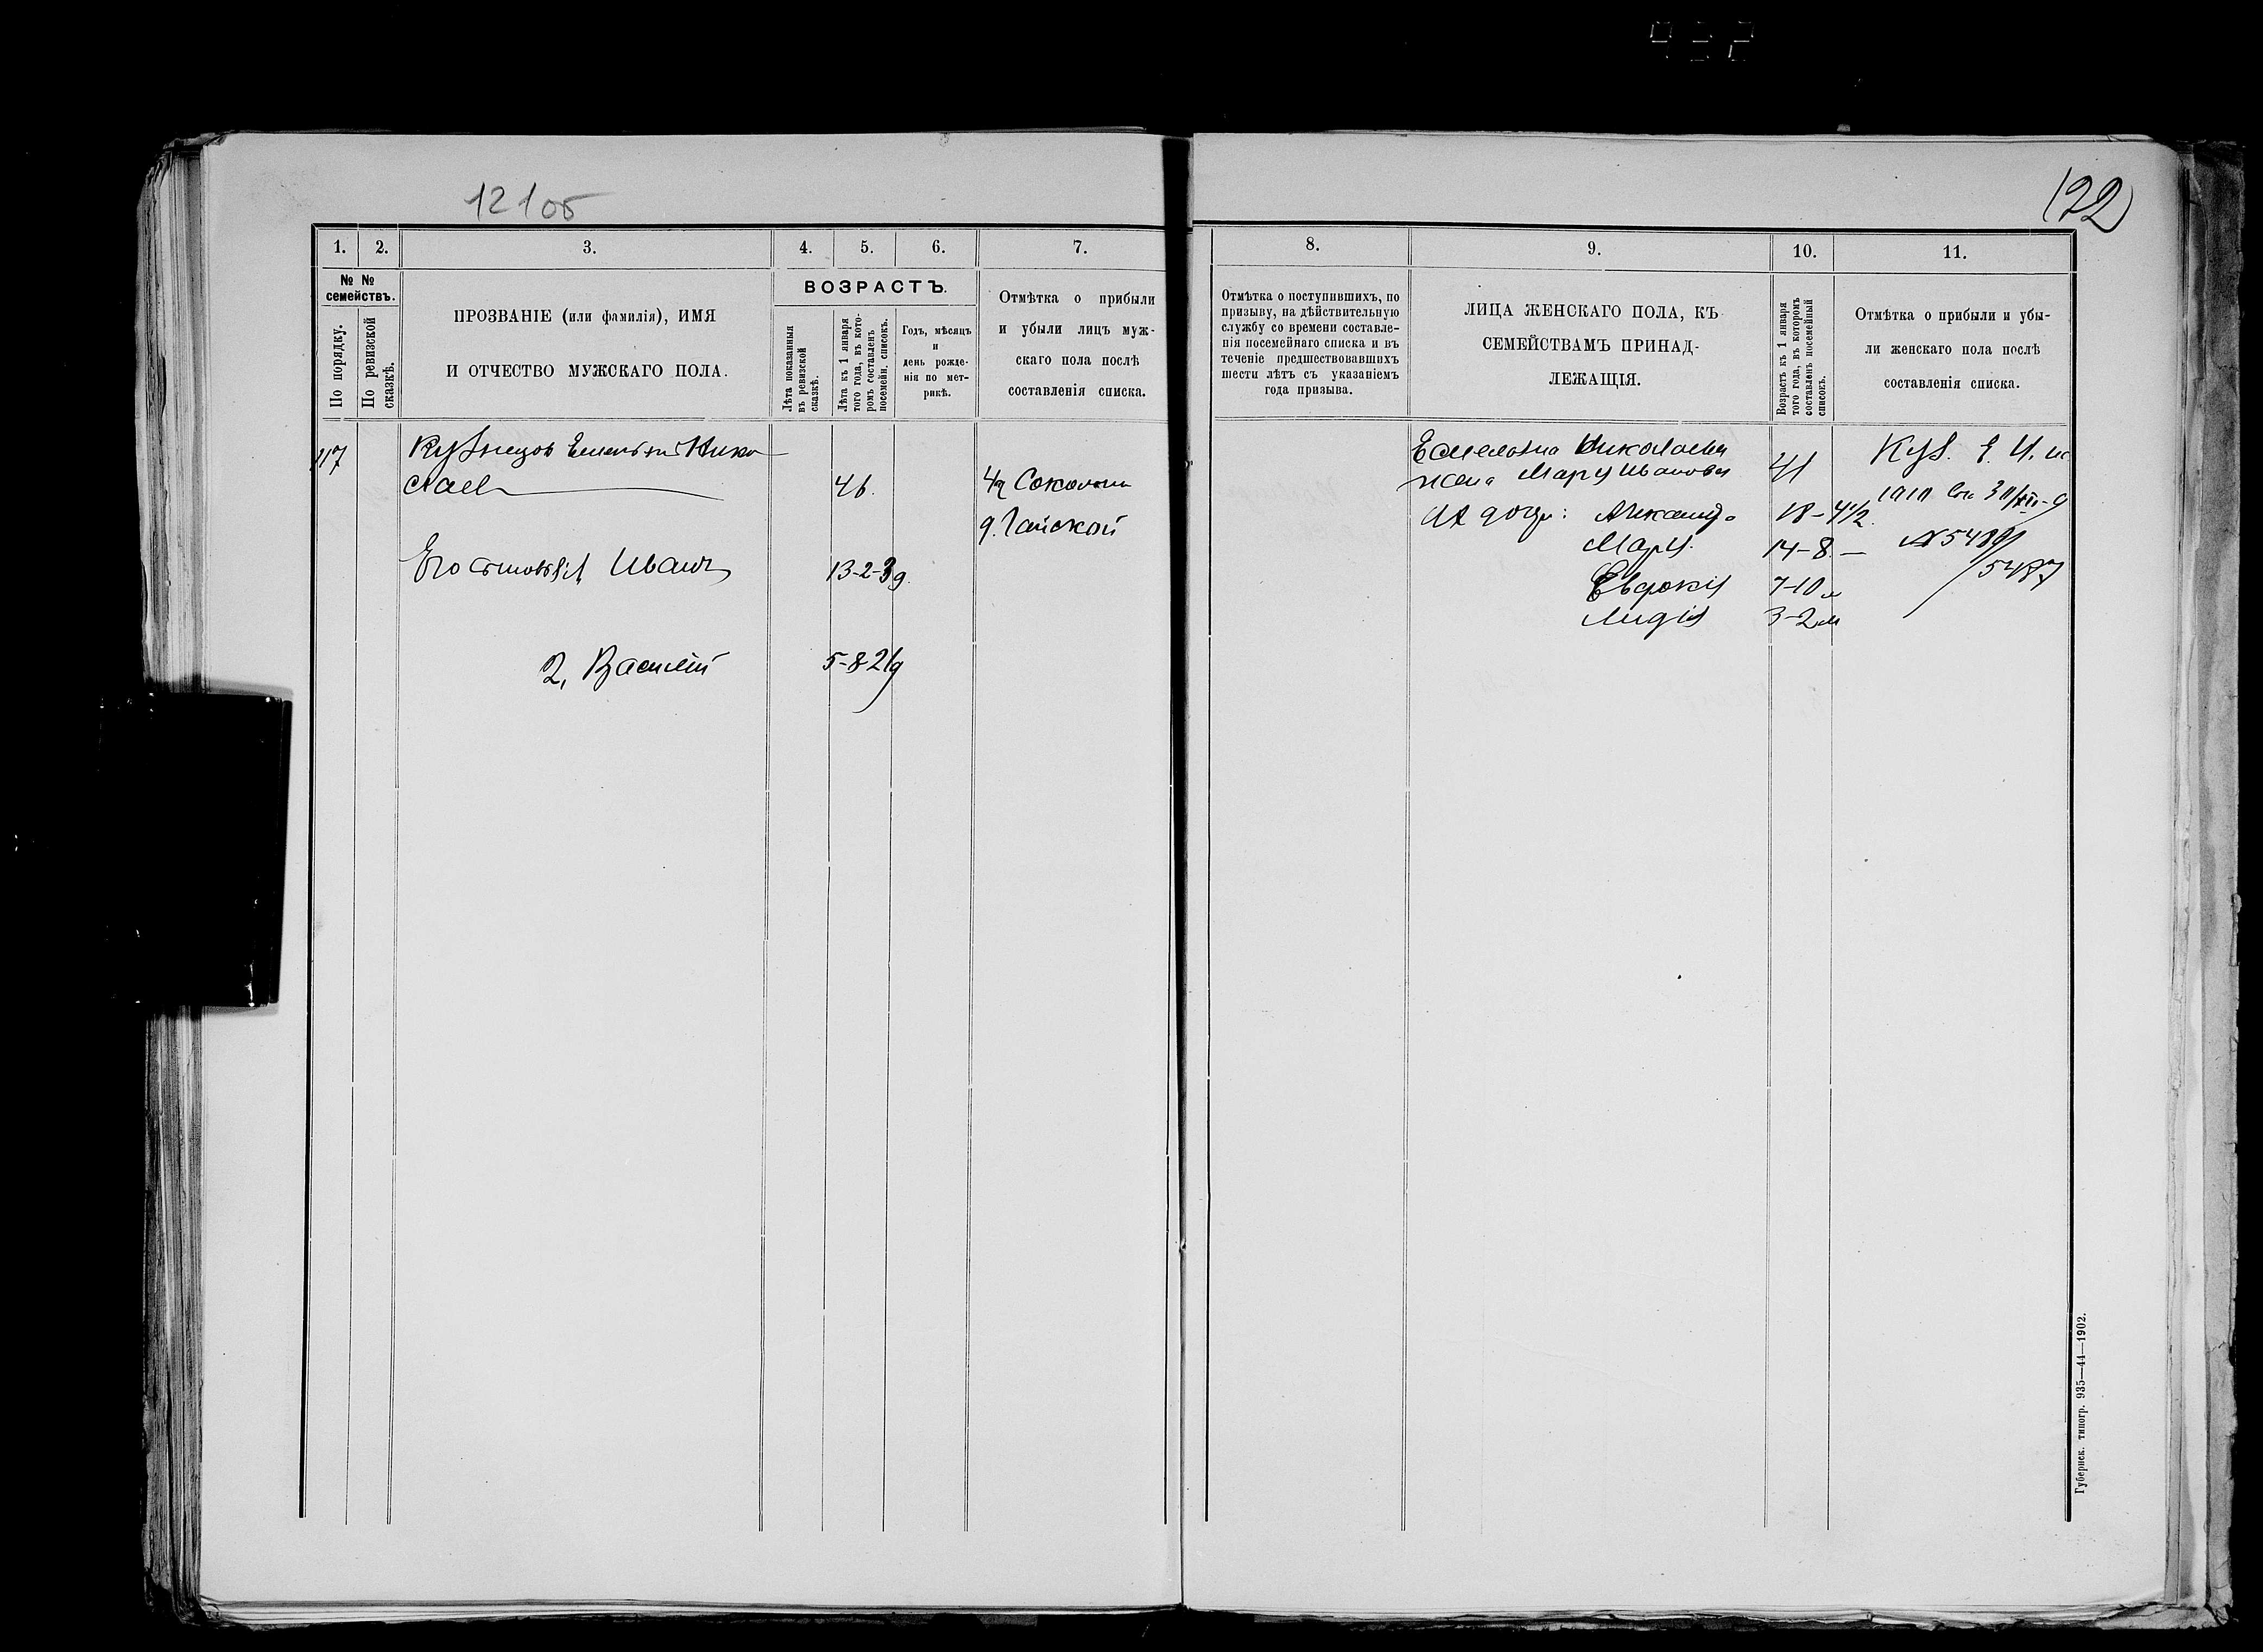 121об
122
1. 2. 3. 4. 5. 6. 7.
№ № семействъ.
По порядку.
По ревизской сказкѣ.
ПРОЗВАНІЕ (или фамилія), ИМЯ
И ОТЧЕСТВО МУЖСКАГО ПОЛА.
ВОЗРАСТЪ.
Лѣта показанныя
въ ревизской
сказкѣ.
Лѣта къ 1 января
того года, въ кото-
ромъ составленъ
посемейн. списокъ.
Годъ, мѣсяцъ
и
день рожде-
нія по мет-
рикѣ.
Отмѣтка о прибыли
и убыли лицъ муж-
скаго пола послѣ
составленія списка.
117 Кузнецов Емельян Нико
лаев 46.
д. Гайской
Его сыновья: Иван 13-2-3д.
2, Василий 5-8-21д
8. 9. 10. 11.
Отмѣтка о поступившихъ, по
призыву, на дѣйствительную
службу со времени составле-
нія посемейнаго списка и въ
теченіе предшествовавшихъ
шести лѣтъ съ указаніемъ
года призыва.
ЛИЦА ЖЕНСКАГО ПОЛА, КЪ
СЕМЕЙСТВАМЪ ПРИНАД-
ЛЕЖАЩІЯ.
Возрастъ къ 1 января
того года, въ которомъ
составленъ посемейный
списокъ.
Отмѣтка о прибыли и убы-
ли женскаго пола послѣ
составленія списка.
Емельяна Николаева
жена Марія Иванова 41
Их дочери: Александра 18-4 1/2
Марія 14-8 —
Евдокія 7-10 м
Лидія 3-2 м
Куз. Е. Н.
5487
Губернск. типогр. 935—44—1902.